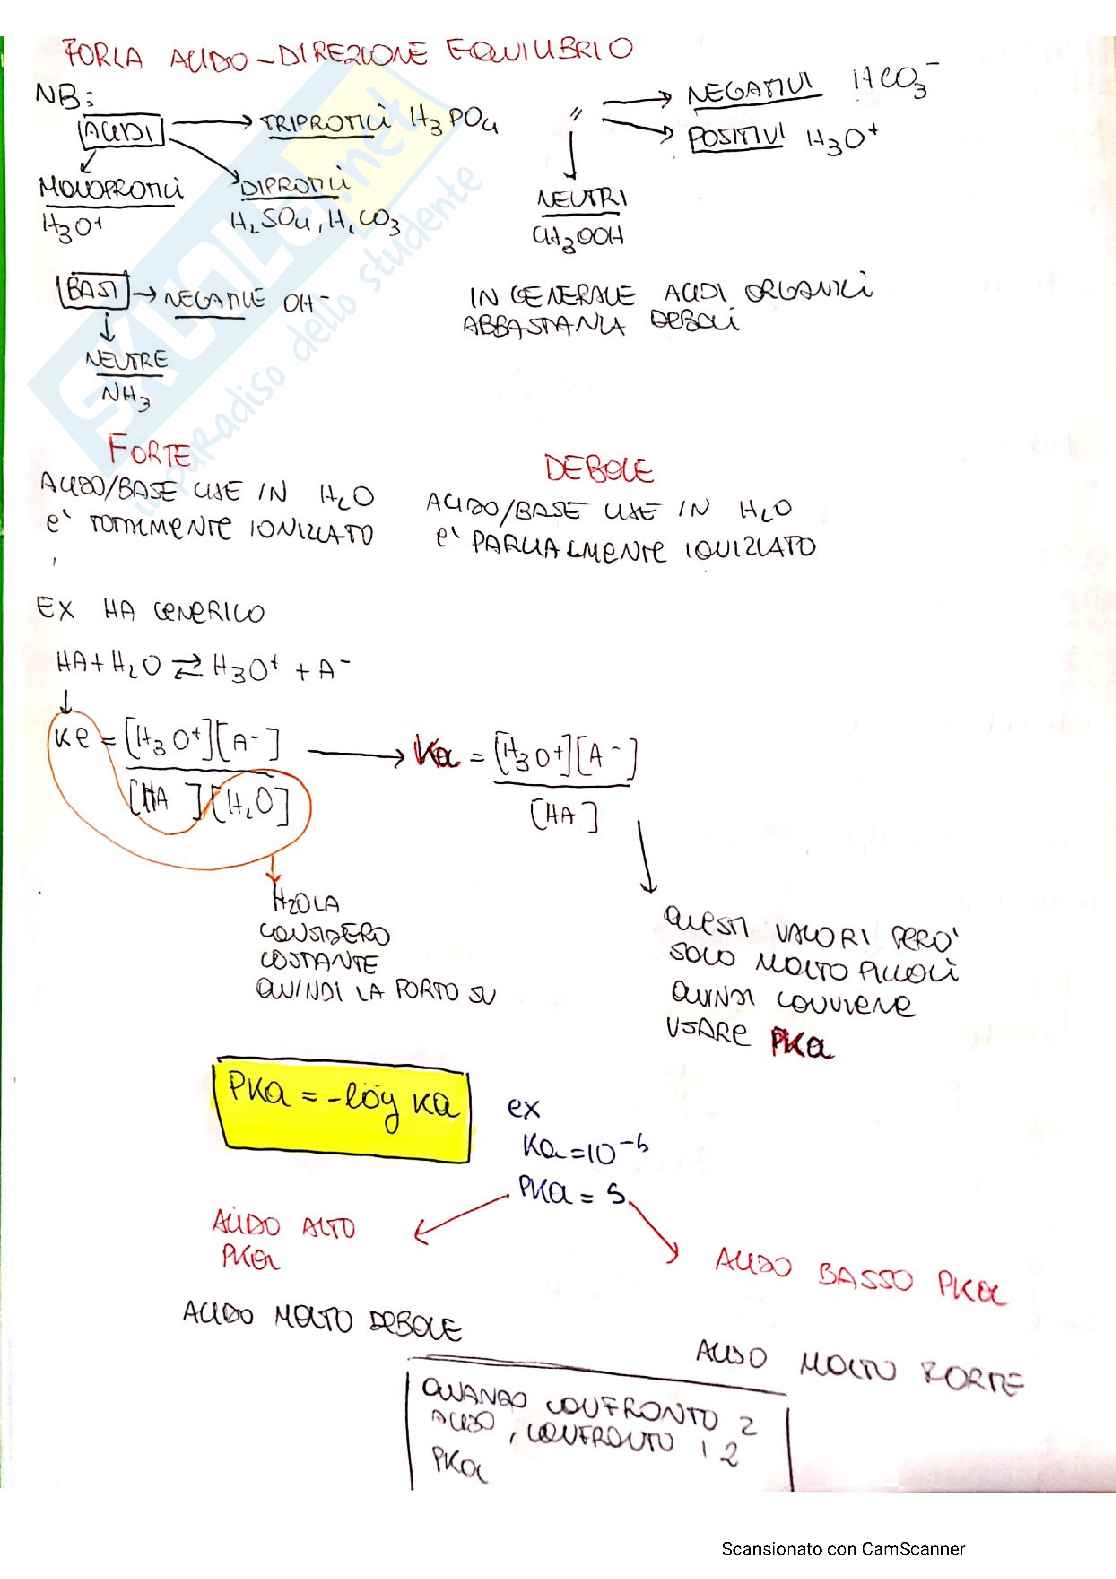 FORZA ACIDO - DIREZIONE EQUILIBRIO
NB:
ACIDI → TRIPROTICI H₃PO₄
MONOPROTICI
H₃O⁺
DIPROTICI
H₂SO₄, H₂CO₃
" → NEGATIVI HCO₃⁻
→ POSITIVI H₃O⁺
NEUTRI
CH₃OOH
BASI → NEGATIVE OH⁻
NEUTRE
NH₃
IN GENERALE ACIDI ORGANICI
ABBASTANZA DEBOLI
FORTE
ACIDO/BASE CHE IN H₂O
e' TOTALMENTE IONIZZATO
DEBOLE
ACIDO/BASE CHE IN H₂O
e' PARZIALMENTE IONIZZATO
EX HA GENERICO
HA + H₂O ⇄ H₃O⁺ + A⁻
Ke = [H₃O⁺][A⁻] / [HA][H₂O] → Ka = [H₃O⁺][A⁻] / [HA]
H₂O LA
CONSIDERO
COSTANTE
QUINDI LA PORTO SU
QUESTI VALORI PERO'
SOLO MOLTO PICCOLI
QUINDI CONVIENE
USARE PKa
PKa = -log Ka
ex
Ka = 10⁻⁵
PKa = 5
ACIDO ALTO
PKa
ACIDO MOLTO DEBOLE
ACIDO BASSO PKa
ACIDO MOLTO FORTE
QUANDO CONFRONTO 2
ACIDO, CONFRONTO I 2
PKa
SKUOLA.net
il paradiso dello studente
Scansionato con CamScanner